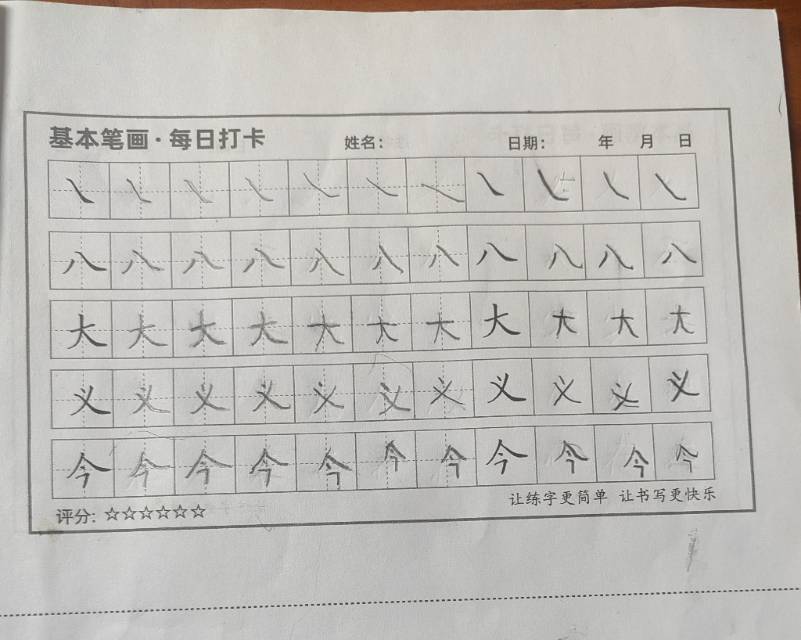 基本笔画·每日打卡 姓名: 日期: 年 月 日
㇏ ㇏ ㇏ ㇏ ㇏ ㇏ ㇏ ㇏ ㇏ ㇏ ㇏
八 八 八 八 八 八 八 八 八 八 八
大 大 大 大 大 大 大 大 大 大 大
义 义 义 义 义 义 义 义 义 义 义
今 今 今 今 今 今 今 今 今 今 今
评分: ☆☆☆☆☆☆ 让练字更简单 让书写更快乐